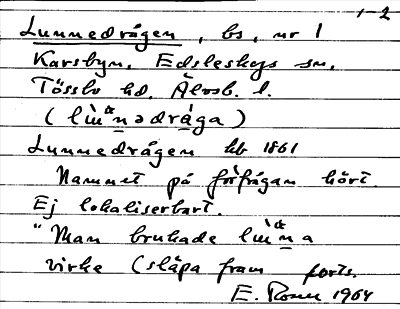 1-2
Lunnedrågen, bs, nr 1
Karsbyn, Edsleskogs sn,
Tössbo hd. Älvsb. l.
Lunnedrågen hb 1861
Namnet på förfrågan hört.
Ej lokaliserbart.
"Man brukade
virke (släpa fram forts.
E. Rosén 1964